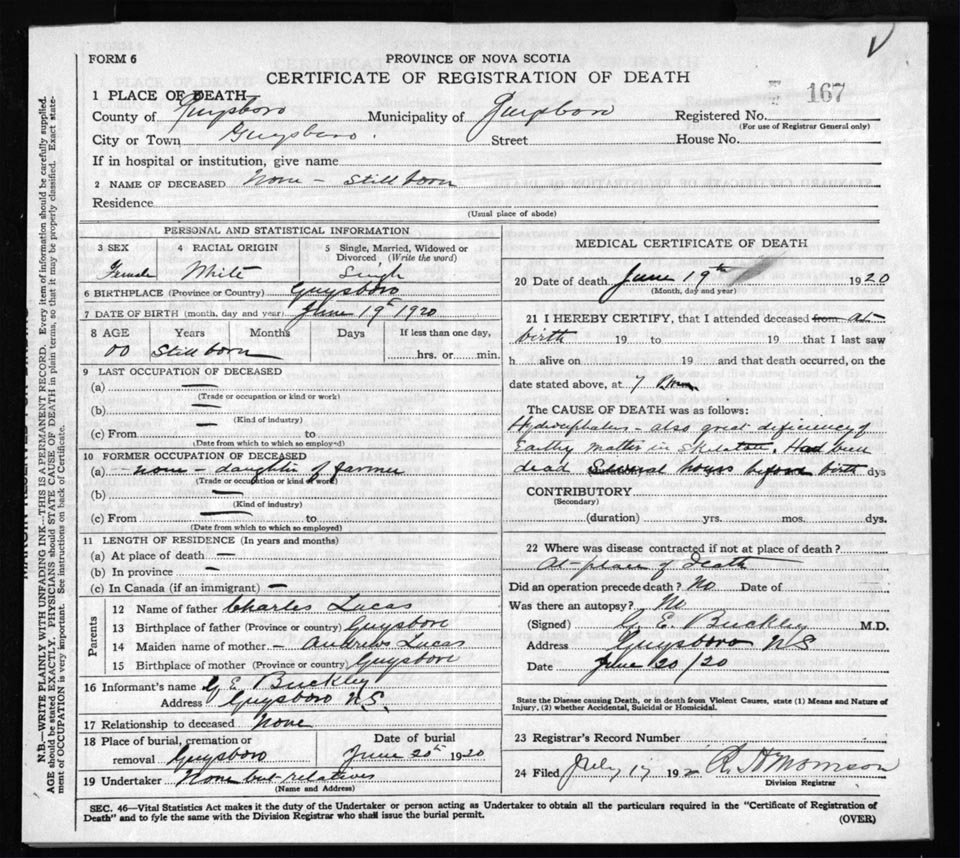 FORM 6
PROVINCE OF NOVA SCOTIA
CERTIFICATE OF REGISTRATION OF DEATH
167
1 PLACE OF DEATH
County of Guysboro Municipality of Guysboro Registered No.
(For use of Registrar General only)
City or Town Guysboro. Street House No.
If in hospital or institution, give name
2 NAME OF DECEASED None - Still born
Residence
(Usual place of abode)
PERSONAL AND STATISTICAL INFORMATION
3 SEX 4 RACIAL ORIGIN 5 Single, Married, Widowed or
Divorced (Write the word)
Female White Single
6 BIRTHPLACE (Province or Country) Guysboro
7 DATE OF BIRTH (month, day and year) June 19th 1920
8 AGE Years Months Days If less than one day,
00 Still born hrs. or min.
9 LAST OCCUPATION OF DECEASED
(a) —
(Trade or occupation or kind of work)
(b) —
(Kind of industry)
(c) From — to
(Date from which to which so employed)
10 FORMER OCCUPATION OF DECEASED
(a) none - daughter of farmer
(Trade or occupation or kind of work)
(b) —
(Kind of industry)
(c) From — to
(Date from which to which so employed)
11 LENGTH OF RESIDENCE (In years and months)
(a) At place of death —
(b) In province —
(c) In Canada (if an immigrant) —
Parents
12 Name of father Charles Lucas
13 Birthplace of father (Province or country) Guysboro
14 Maiden name of mother - Andrew Lucas
15 Birthplace of mother (Province or country) Guysboro
16 Informant's name G E Buckley
Address Guysboro N.S.
17 Relationship to deceased None
18 Place of burial, cremation or Date of burial
removal Guysboro June 20th 1920
19 Undertaker None but relatives
(Name and Address)
MEDICAL CERTIFICATE OF DEATH
20 Date of death June 19th 1920
(Month, day and year)
21 I HEREBY CERTIFY, that I attended deceased from at
birth 19 to 19 that I last saw
h alive on 19 and that death occurred, on the
date stated above, at 7 P.m.
The CAUSE OF DEATH was as follows:
Hydrocephalus - also great deficiency of
Earthy matter in Skeleton. Had been
dead Several hours before birth dys
CONTRIBUTORY
(Secondary)
(duration) yrs. mos. dys.
22 Where was disease contracted if not at place of death?
At place of death
Did an operation precede death? No Date of
Was there an autopsy? No
(Signed) G. E. Buckley M.D.
Address Guysboro NS
Date June 20/20
State the Disease causing Death, or in death from Violent Causes, state (1) Means and Nature of
Injury, (2) whether Accidental, Suicidal or Homicidal.
23 Registrar's Record Number
24 Filed July 17 1920 Morrison
Division Registrar
SEC. 46—Vital Statistics Act makes it the duty of the Undertaker or person acting as Undertaker to obtain all the particulars required in the "Certificate of Registration of
Death" and to fyle the same with the Division Registrar who shall issue the burial permit. (OVER)
N.B.—WRITE PLAINLY WITH UNFADING INK—THIS IS A PERMANENT RECORD. Every item of information should be carefully supplied.
AGE should be stated EXACTLY. PHYSICIANS should STATE CAUSE OF DEATH in plain terms, so that it may be properly classified. Exact state-
ment of OCCUPATION is very important. See instructions on back of Certificate.